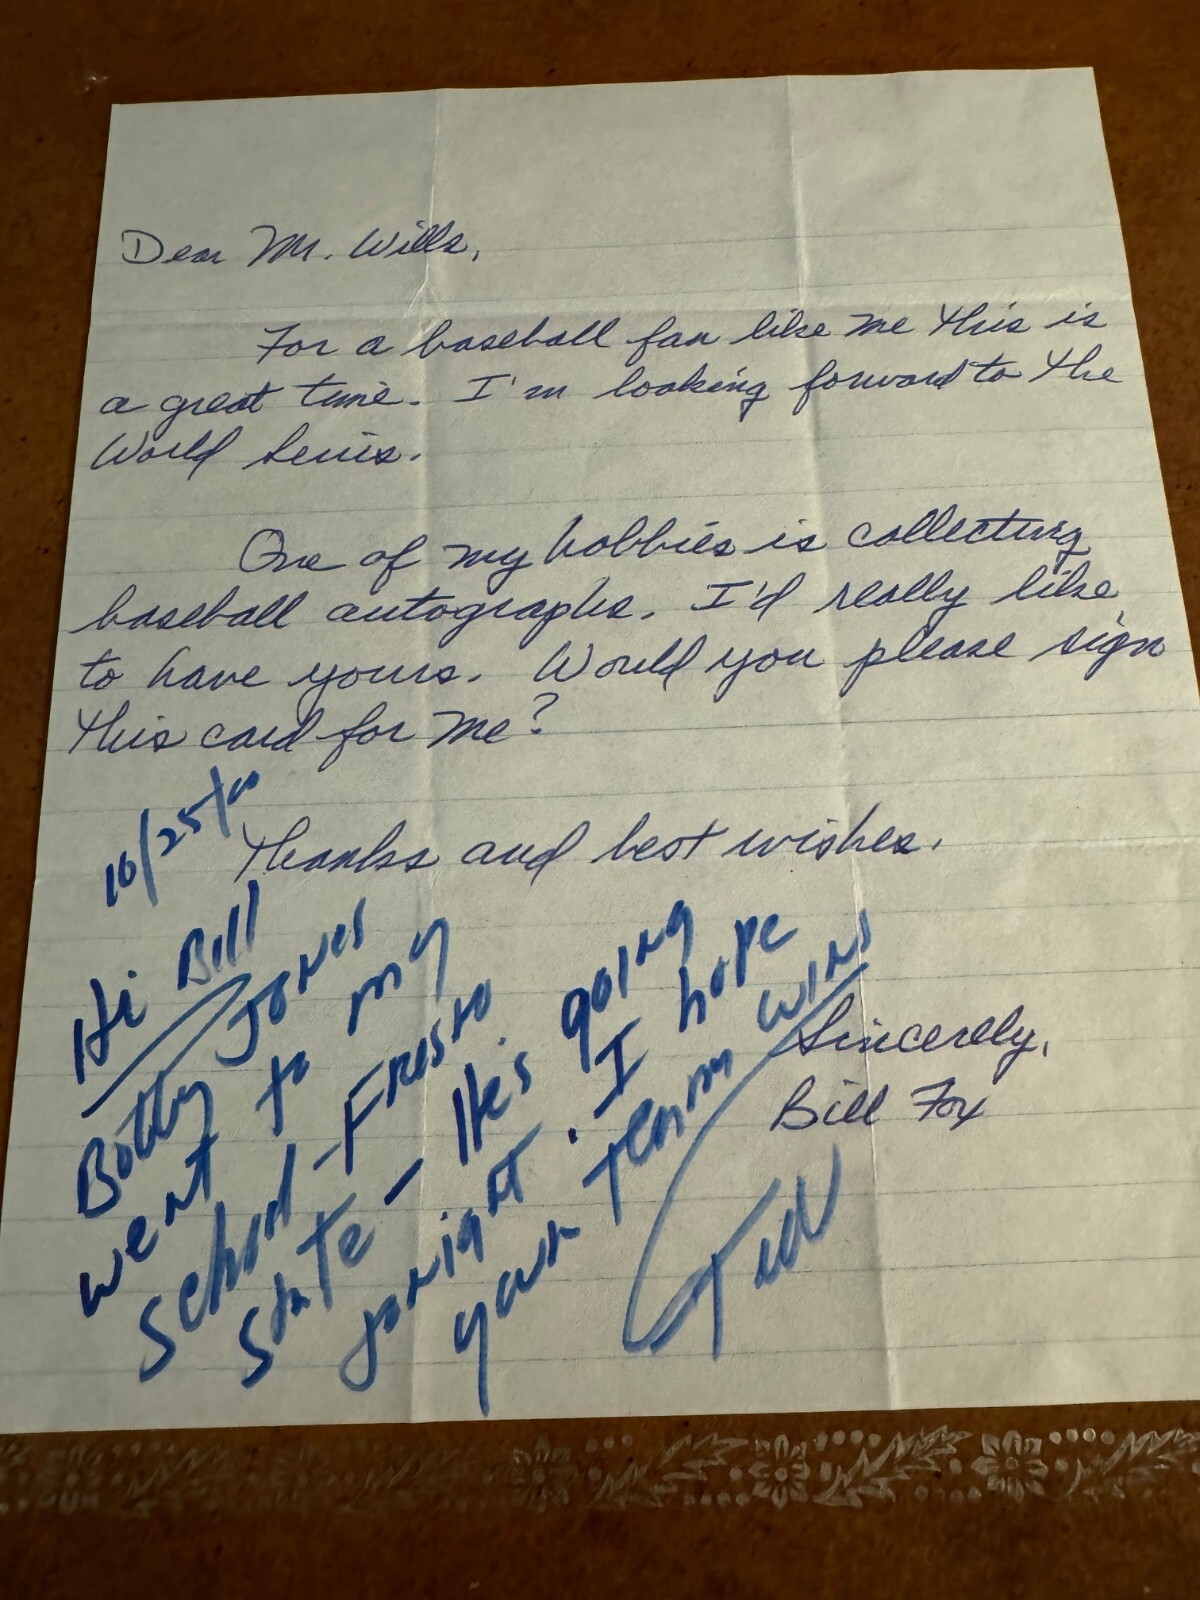 Dear Mr. Wills,
For a baseball fan like me this is
a great time. I'm looking forward to the
World Series.
One of my hobbies is collecting
baseball autographs. I'd really like
to have yours. Would you please sign
this card for me?
Thanks and best wishes.
Sincerely,
Bill Fox
10/25/00
Hi Bill
Bobby Jones
went to my
School - Fresno
State - He's going
tonight. I hope
your team wins
Ted